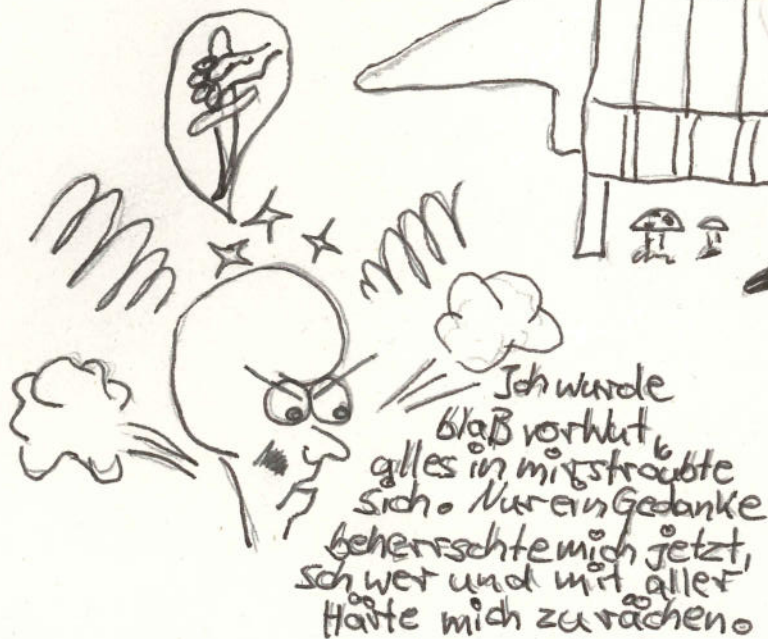 Ich wurde
blaß vor Wut,
alles in mir sträubte
sich. Nur ein Gedanke
beherrschte mich jetzt,
schwer und mit aller
Härte mich zu rächen.